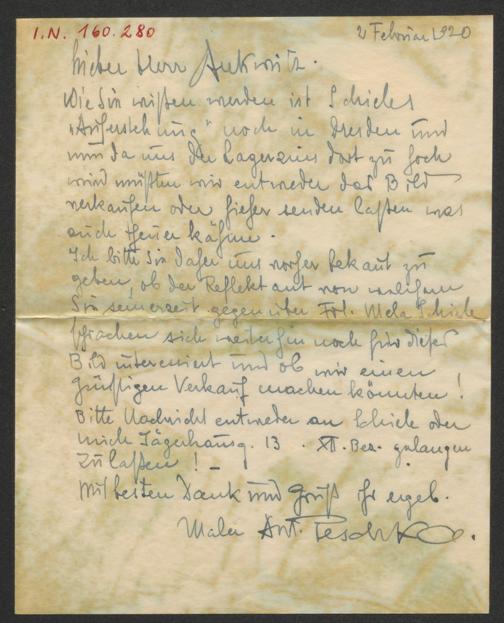 I.N. 160.280
2 Februar 1920
Lieber Herr Ankwitz.
Wie Sie wissen werden ist Schieles
"Auferstehung" noch in Dresden und
nun da uns der Lagerzins dort zu hoch
wird müßten wir entweder das Bild
verkaufen oder hieher senden laßen was
auch teuer käme.
Ich bitte Sie daher uns vorher bekant zu
geben, ob der Reflektant von welchem
Sie seinerzeit gegenüber Frl. Mela Schiele
sprachen sich weiterhin noch für dieses
Bild interessiert und ob wir einen
günstigen Verkauf machen könnten!
Bitte Nachricht entweder an Schiele oder
mich Jägerhausg. 13 . XII. Bez. gelangen
zu laßen! –
Mit besten Dank und Gruß Ihr ergeb.
Maler Ant. Peschka.